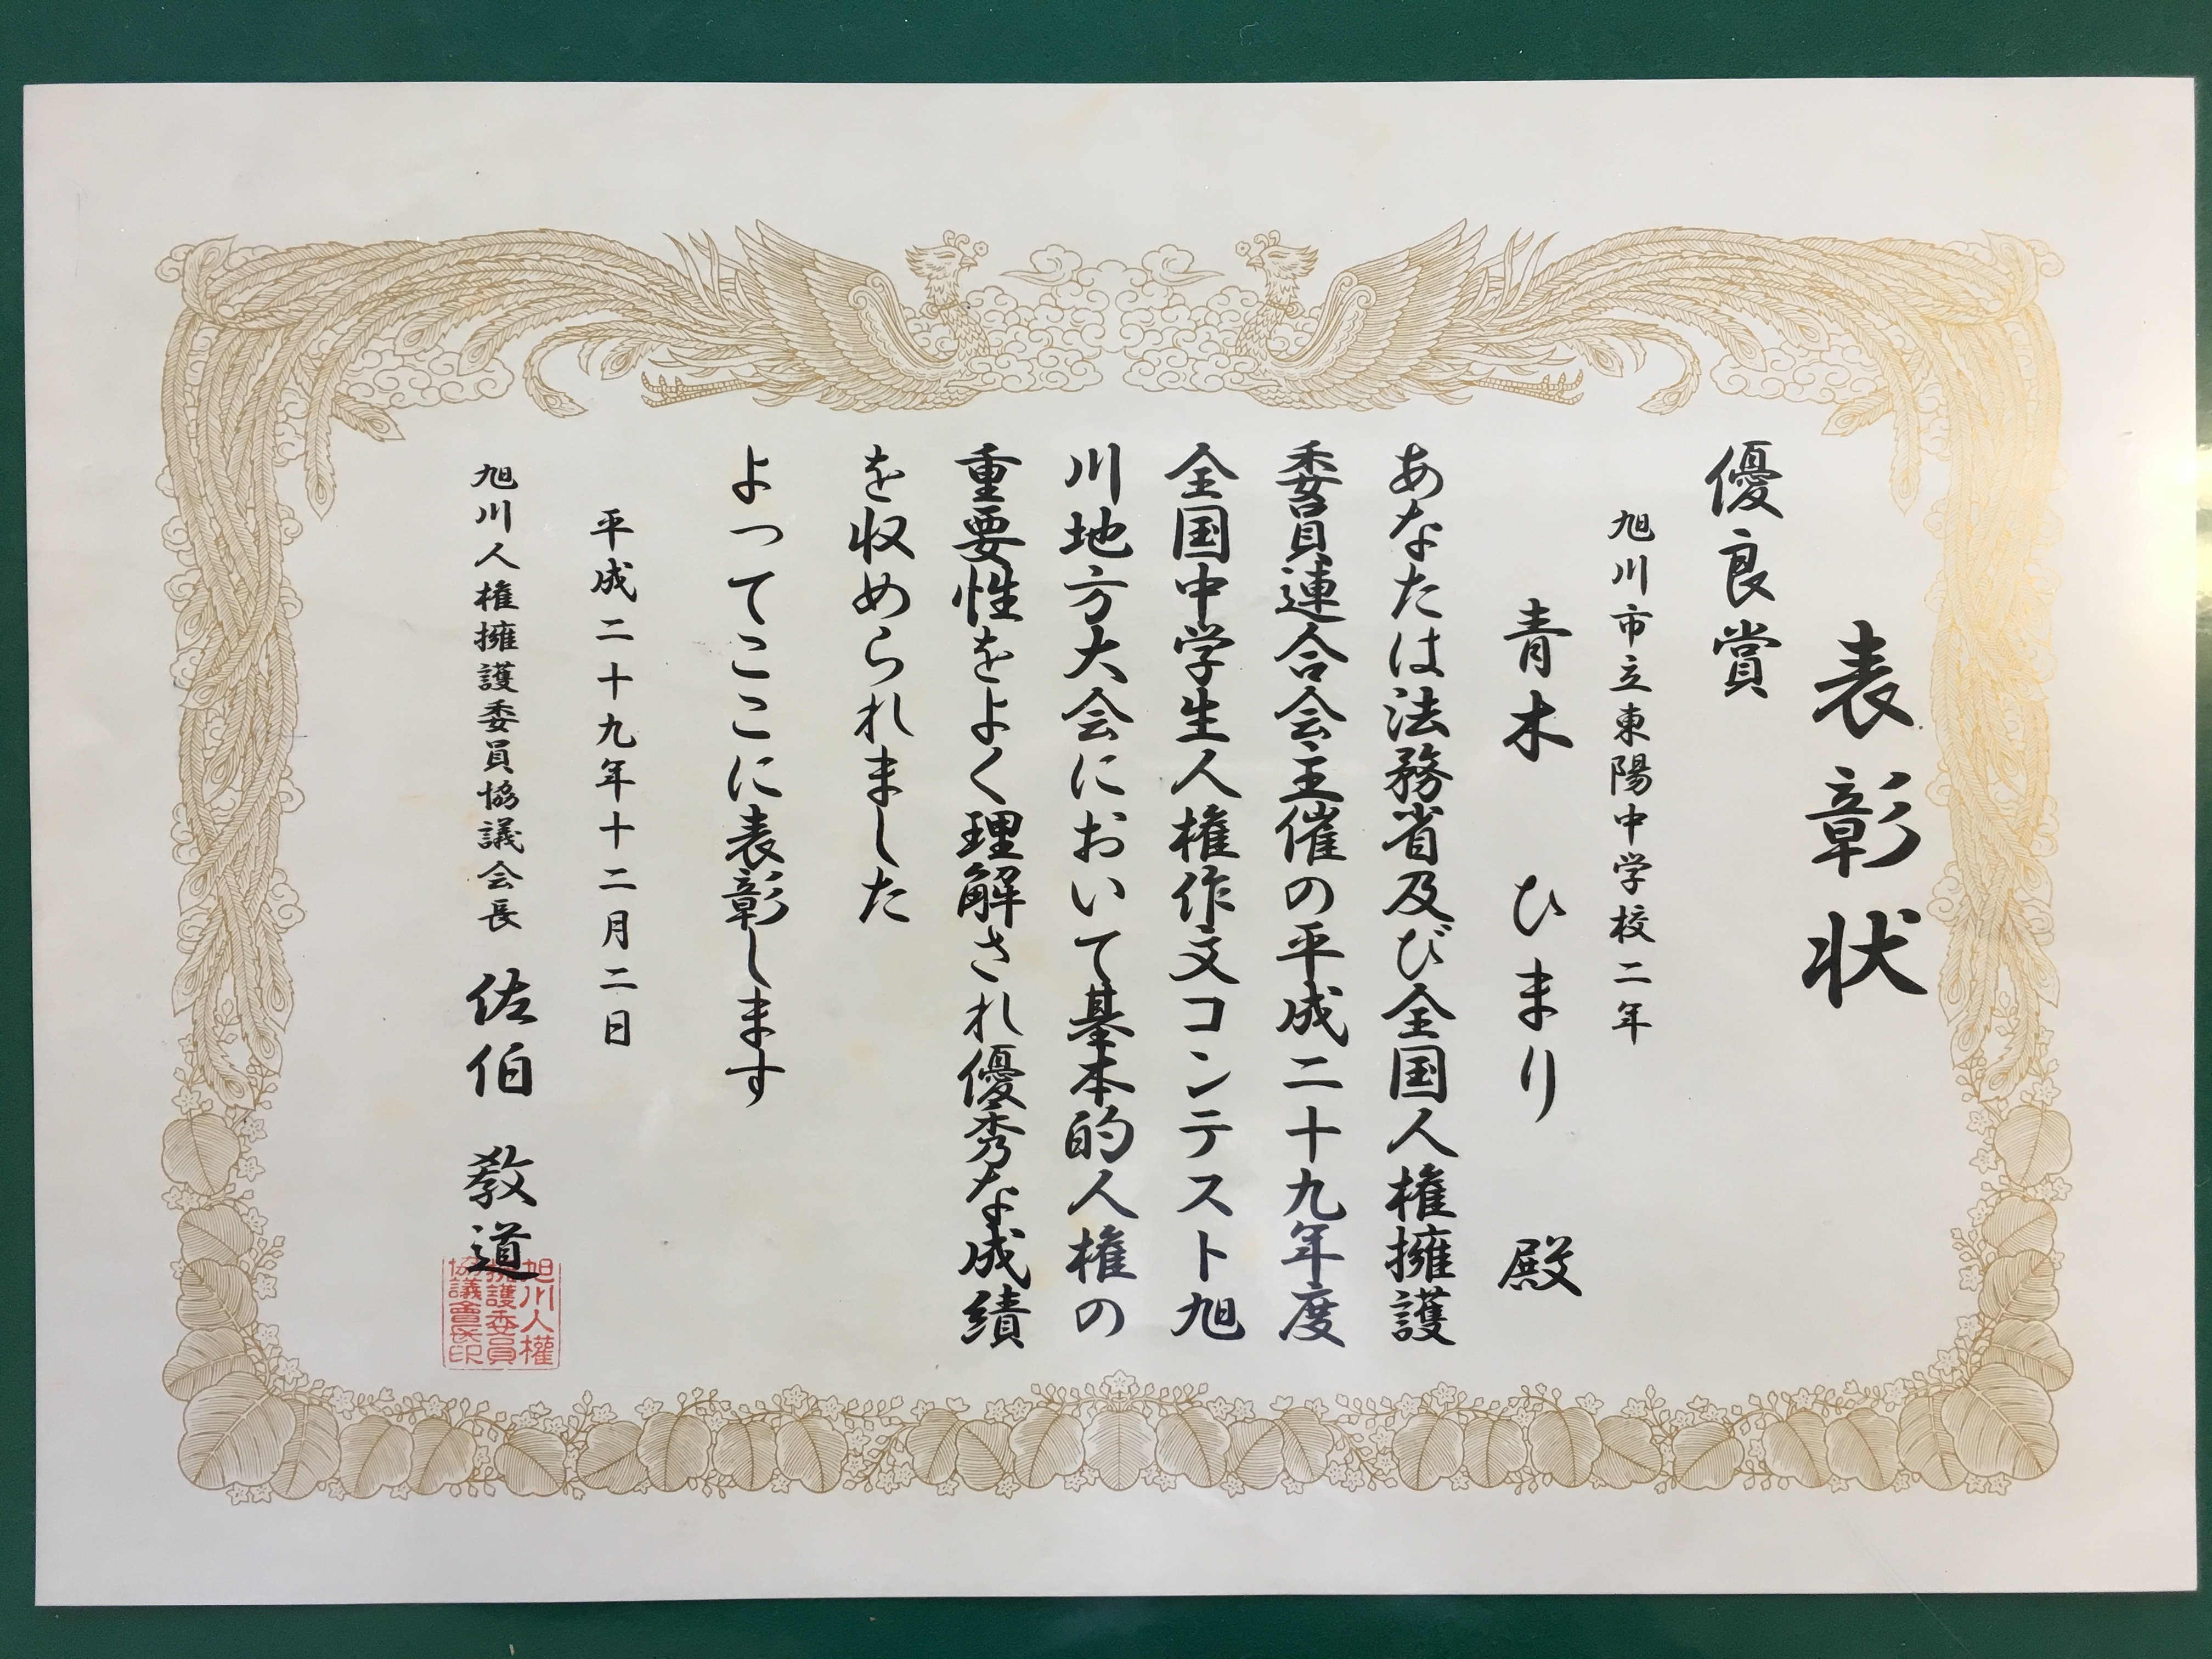 表彰状
優良賞
旭川市立東陽中学校二年
青木 ひまり 殿
あなたは法務省及び全国人権擁護
委員連合会主催の平成二十九年度
全国中学生人権作文コンテスト旭
川地方大会において基本的人権の
重要性をよく理解され優秀な成績
を収められました
よってここに表彰します
平成二十九年十二月二日
旭川人権擁護委員協議会長 佐伯 敎道
旭川人權
擁護委員
協議會長印